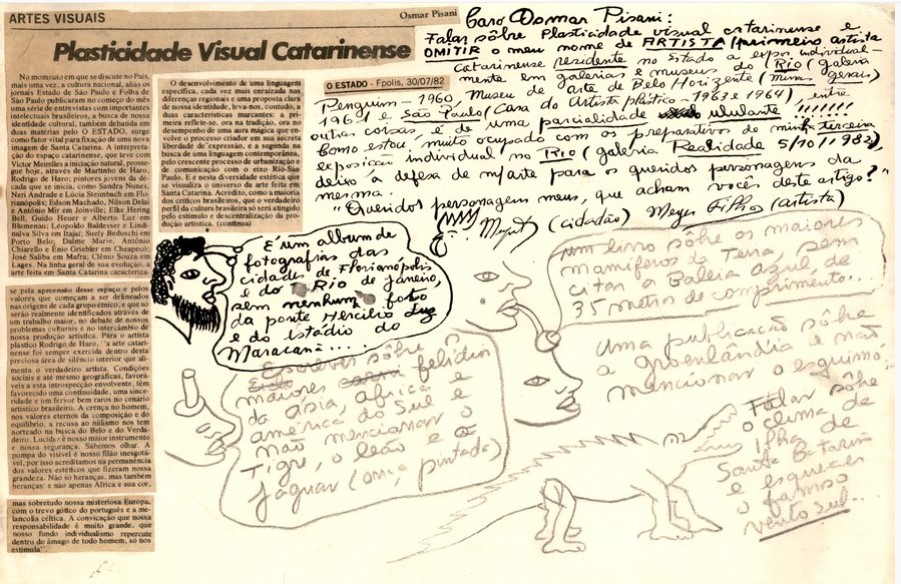 ARTES VISUAIS
Osmar Pisani
Plasticidade Visual Catarinense
No momento em que se discute no País,
mais uma vez, a cultura nacional, aliás os
jornais Estado de São Paulo e Folha de
São Paulo publicaram no começo do mês
uma série de entrevistas com importantes
intelectuais brasileiros, a busca de nossa
identidade cultural, também debatida em
duas matérias pelo O ESTADO, surge
como fator vital para fixação de uma nova
imagem de Santa Catarina. A interpreta-
ção do espaço catarinense, que teve com
Victor Meirelles a iniciação natural, prosse-
gue hoje, através de Martinho de Haro,
Rodrigo de Haro; pastores jovens da dé-
cada que se inicia, como Sandra Nunes,
Neri Andrade e Lúcia Steimbach em Flo-
rianópolis; Edson Machado, Nilson Delai
e Antônio Mir em Joinville; Elke Hering
Bell, Guido Heuer e Alberto Luz em
Blumenau; Leopoldo Baldester e Lindi-
nalva Silva em Itajaí; Suely Beduschi em
Porto Belo; Dalme Marie, Antônio
Chiarello e Ênio Griebler em Chapecó;
José Saliba em Mafra; Clênio Souza em
Lages. Na linha geral de sua evolução, a
arte feita em Santa Catarina caracteriza-
se pela apreensão desse espaço e pelos
valores que começam a ser delineados
nas origens de cada grupo étnico, e que só
serão realmente identificados através de
um trabalho maior, no debate de nossos
problemas culturais e no intercâmbio de
nossa produção artística. Para o artista
plástico Rodrigo de Haro, "a arte catari-
nense foi sempre exercida dentro desta
preciosa área de silêncio interior que ali-
menta o verdadeiro artista. Condições
sociais e até mesmo geográficas, favorá-
veis a esta introspecção envolvente, têm
favorecido uma continuidade, uma since-
ridade e um fervor bem raros no cenário
artístico brasileiro. A crença no homem,
nos valores eternos da composição e do
equilíbrio, a recusa ao niilismo nos tem
norteado na busca do Belo e do Verda-
deiro. Lucidez é nosso maior instrumento
e nossa segurança. Sabemos olhar. A
pompa do visível é nosso filão inesgotá-
vel, por isso acreditamos na permanência
dos valores estéticos que fizeram nossa
grandeza. Não só heranças, mas também
heranças: e não apenas Africa e sua cor,
mas sobretudo nossa misteriosa Europa,
com o trevo gótico do português e a me-
lancolia céltica. A convicção que nossa
responsabilidade é muito grande, que
nosso fundo individualismo repercute
dentro do âmago de todo homem, só nos
estimula".
O desenvolvimento de uma linguagem
específica, cada vez mais enraizada nas
diferenças regionais e uma proposta clara
de nossa identidade, leva-nos, contudo, a
duas características marcantes: a pri-
meira reflete-se, ora na tradição, ora no
desempenho de uma aura mágica que en-
volve o processo criador em sua secreta
liberdade de expressão, e a segunda na
busca de uma linguagem contemporânea,
pelo crescente processo de urbanização e
de comunicação com o eixo Rio-São
Paulo. É nesta diversidade estética que
se visualiza o universo da arte feita em
Santa Catarina. Acredito, como a maioria
dos críticos brasileiros, que o verdadeiro
perfil da cultura brasileira só será atingido
pelo estímulo e descentralização da pro-
dução artística. (continua)
O ESTADO - Fpolis, 30/07/82
Caro Osmar Pisani:
Falar sôbre Plasticidade visual catarinense e
OMITIR o meu nome de ARTISTA (primeiro artista
catarinense residente no Estado a expor individual-
mente em galerias e museus do Rio (galeria
Penguim - 1960, Museu de arte de Belo Horizonte (minas gerais)
1961 e São Paulo (Casa do Artista plástico - 1963 e 1964) entre
outras coisas, é de uma parcialidade ululante !!!!!!!
Como estou muito ocupado com os preparativos de minha terceira
exposição individual no Rio (galeria Realidade 5/10/1982)
deixo a defesa de m/arte para os queridos personagens da
mesma.
"Queridos personagens meus, que acham vocês deste artigo?"
(cidadão) Meyer Filho (artista)
É um album de
fotografias das
cidades de Florianópolis
e do Rio de janeiro,
sem nenhuma foto
da ponte Hercílio Luz
e do Estádio do
Maracanã....
um livro sôbre os maiores
mamíferos da Terra, sem
citar a Baleia azul, de
35 metros de comprimento...
Uma publicação sôbre
a groenlândia e não
mencionar o esquimo.
Escrever sôbre os
maiores felídeos
da ásia, africa e
américa do Sul e
não mencionar o
Tigre, o leão e o
jaguar (onça pintada)
Falar sôbre
o clima da
Ilha de
Santa Catarina
e esquecer
o famoso
vento sul...